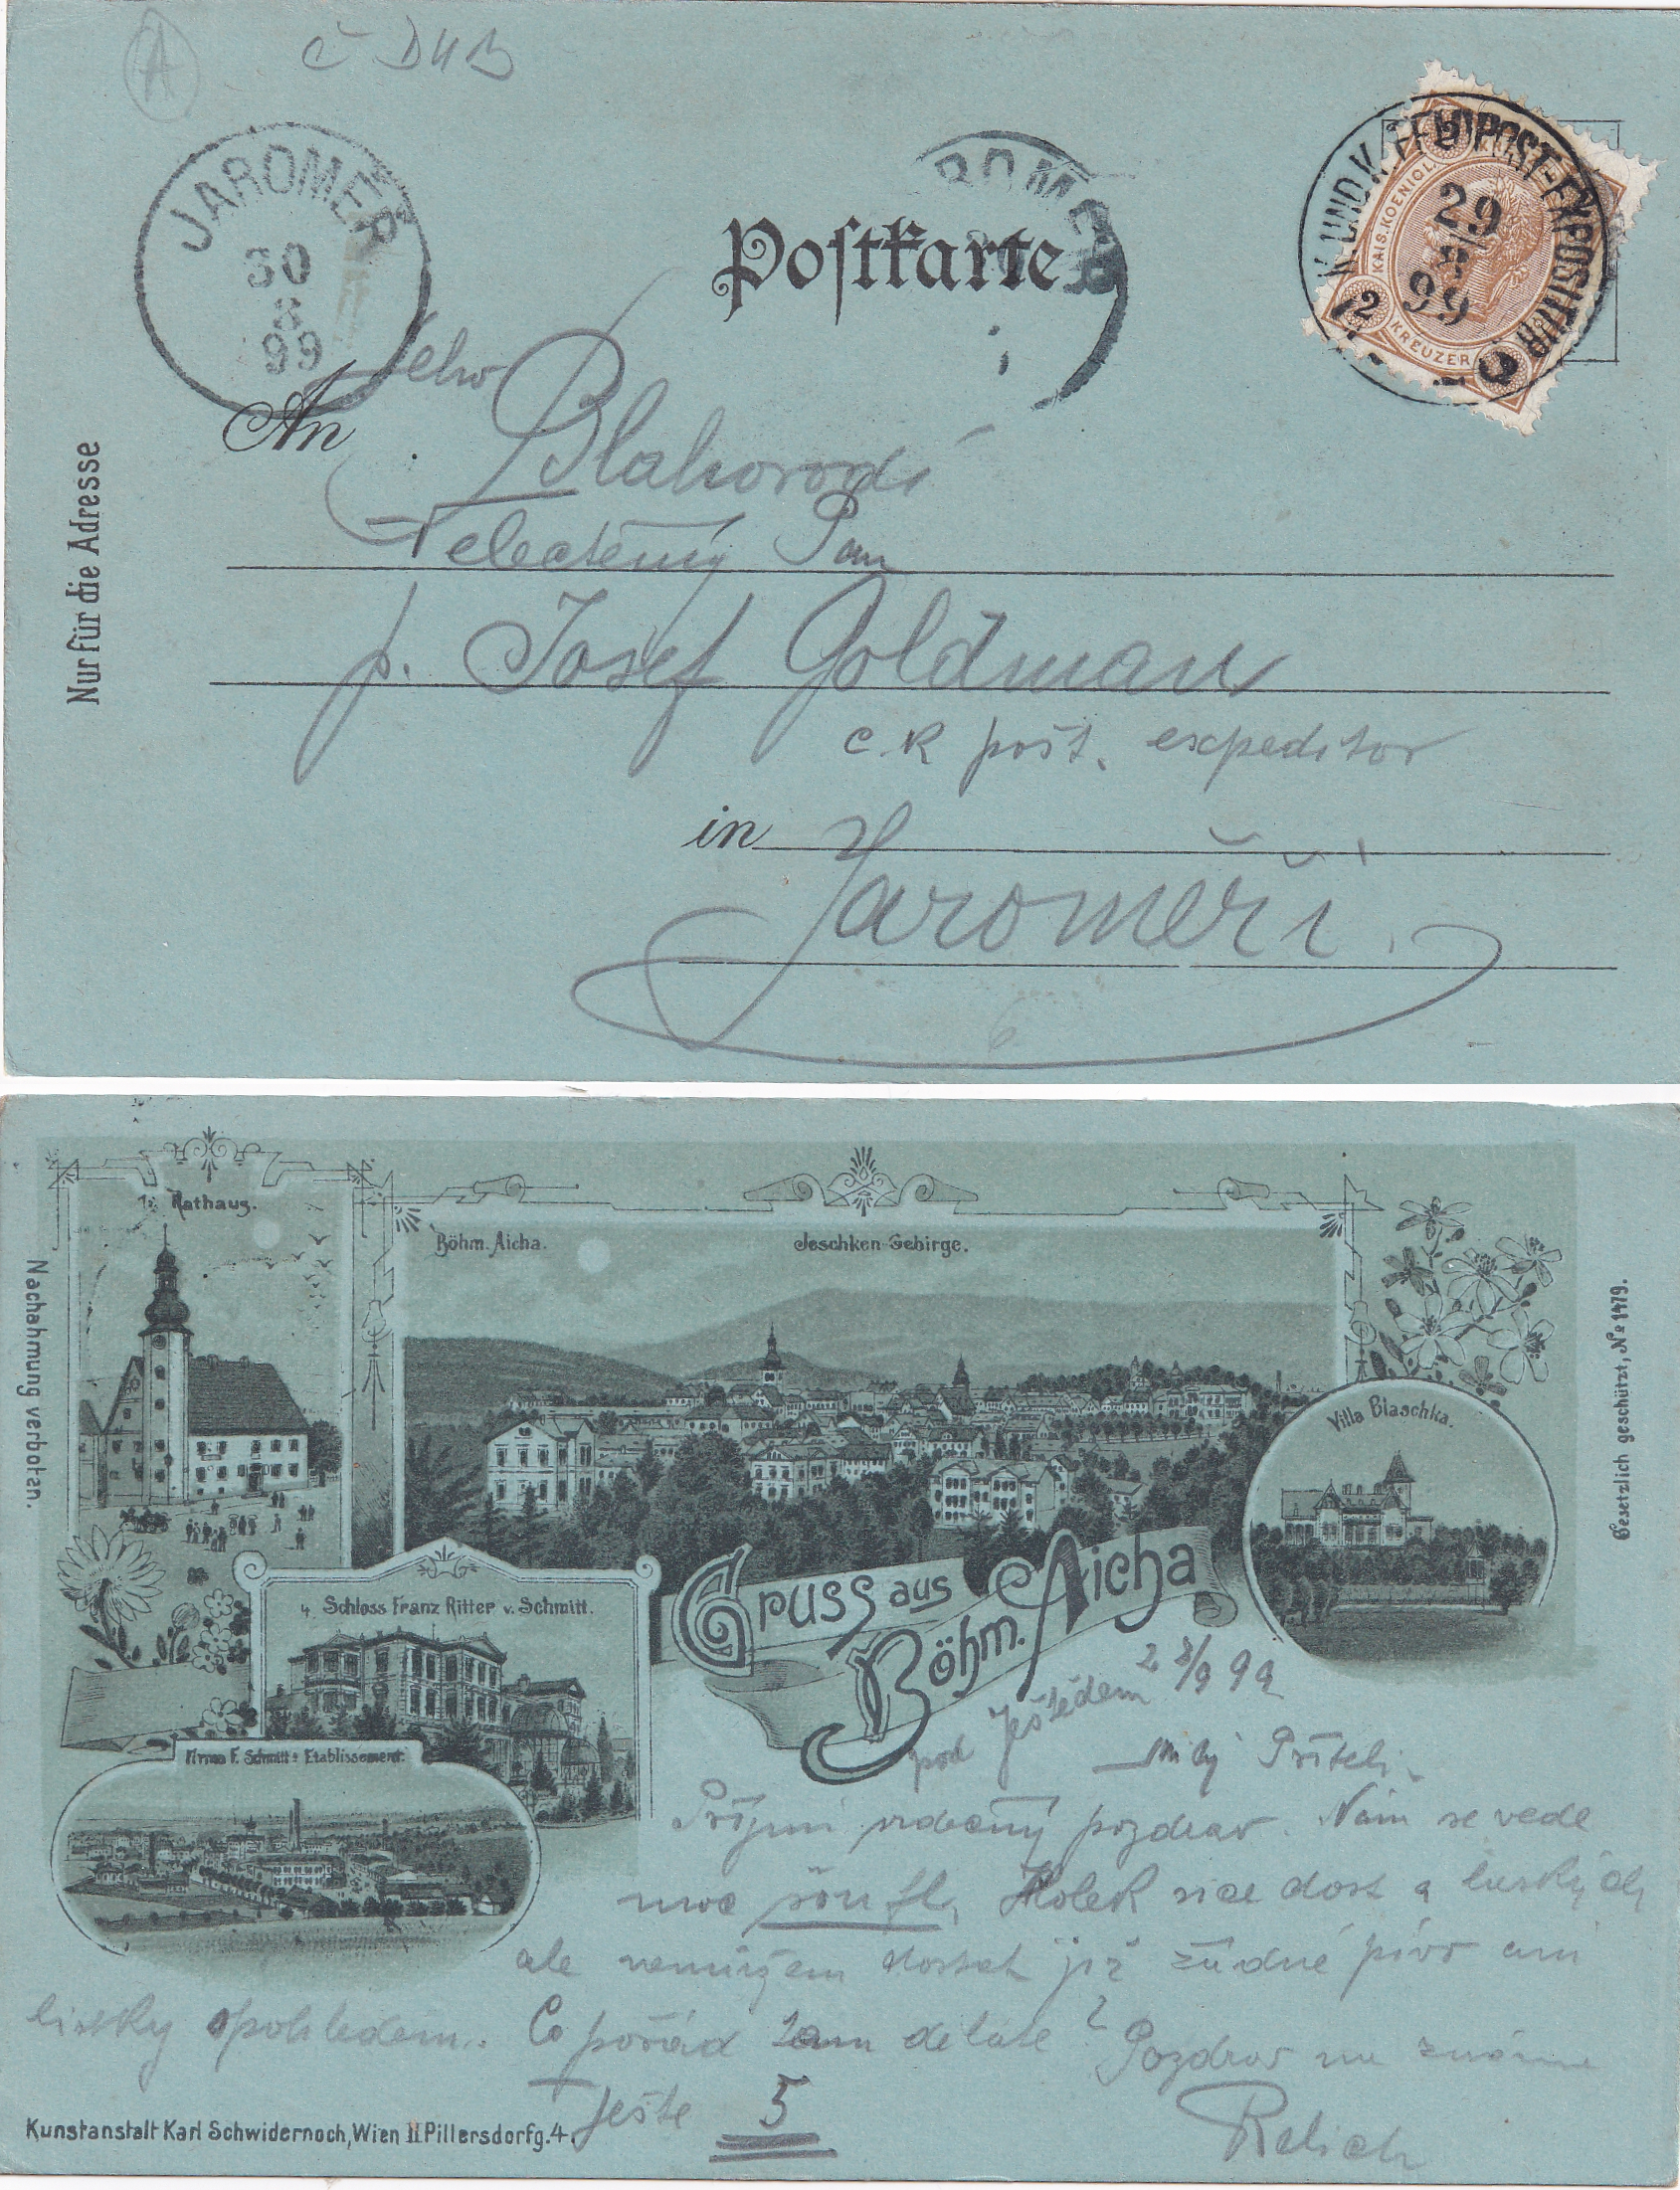 A
č DUB
JAROMĚŘ
30
8
99
ROMĚŘ
Postkarte
K. UND K. FELDPOST-EXPOSITUR
29
99
KAIS. KOENIGL.
2
KREUZER
Nur für die Adresse
An
Jeho
Blahorodí
Velectěný Pan
p. Josef Goldman
c. k pošt. expeditor
in
Jaroměři.
1. Rathaus.
Böhm. Aicha.
Jeschken-Gebirge.
Villa Blaschka.
Nachahmung verboten.
Gesetzlich geschützt, № 1479.
4 Schloss Franz Ritter v. Schmitt.
Firma F. Schmitt's Etablissement.
Gruss aus
Böhm. Aicha
pod Ještědem 28/9 99
Milý Příteli.
Přijmi srdečný pozdrav. Nám se vede
moc Holek sice dost a hezkých
ale nemůžem dostat již žádné pivo ani
lístky s pohledem. Co pořád tam děláte? Pozdrav na známé
Ještě 5
Kunstanstalt Karl Schwidernoch, Wien II Pillersdorfg. 4.